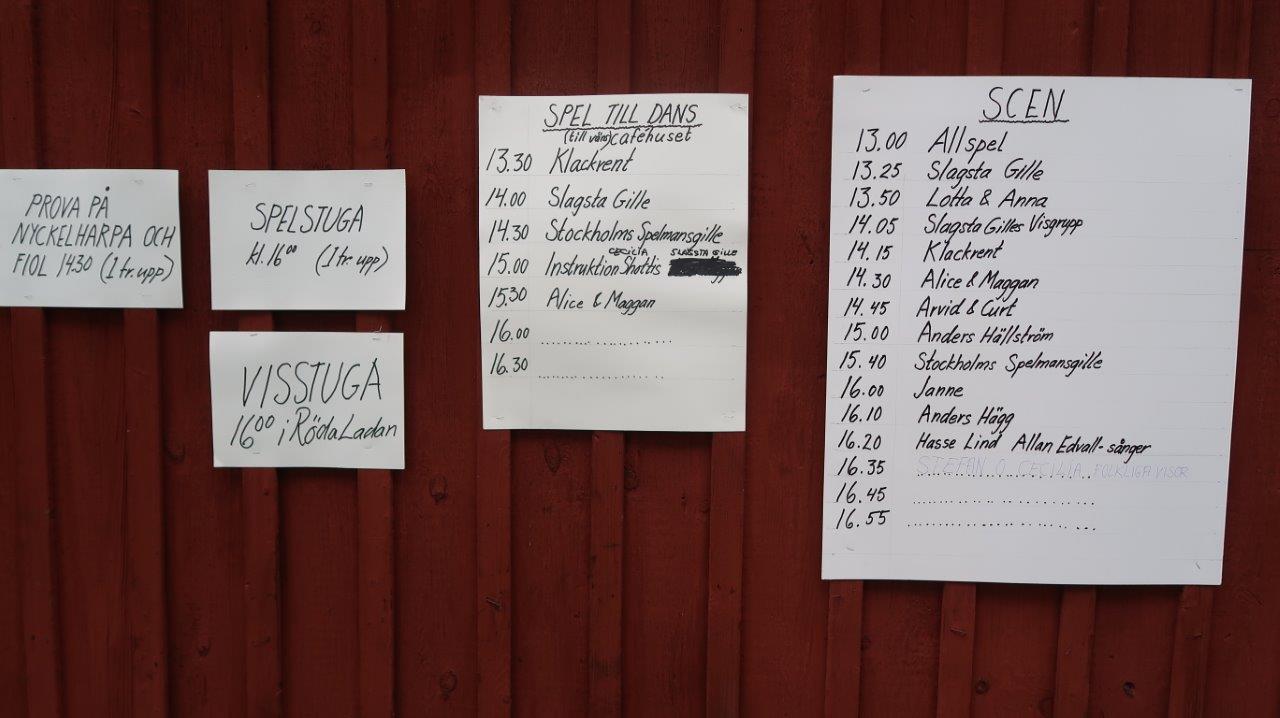 PROVA PÅ
NYCKELHARPA OCH
FIOL 14.30 (1 tr. upp)
SPELSTUGA
kl. 16⁰⁰ (1 tr. upp)
VISSTUGA
16⁰⁰ i Röda Ladan
SPEL TILL DANS
(till väns) caféhuset
13.30 Klackrent
14.00 Slagsta Gille
14.30 Stockholms Spelmansgille
CECILIA SLAGSTA GILLE
15.00 Instruktion Shottis
15.30 Alice & Maggan
16.00 ..............................
16.30 ..............................
SCEN
13.00 Allspel
13.25 Slagsta Gille
13.50 Lotta & Anna
14.05 Slagsta Gilles Visgrupp
14.15 Klackrent
14.30 Alice & Maggan
14.45 Arvid & Curt
15.00 Anders Hällström
15.40 Stockholms Spelmansgille
16.00 Janne
16.10 Anders Hägg
16.20 Hasse Lind Allan Edvall-sånger
16.35 STEFAN O CECILIA, FOLKLIGA VISOR
16.45 ..............................
16.55 ..............................